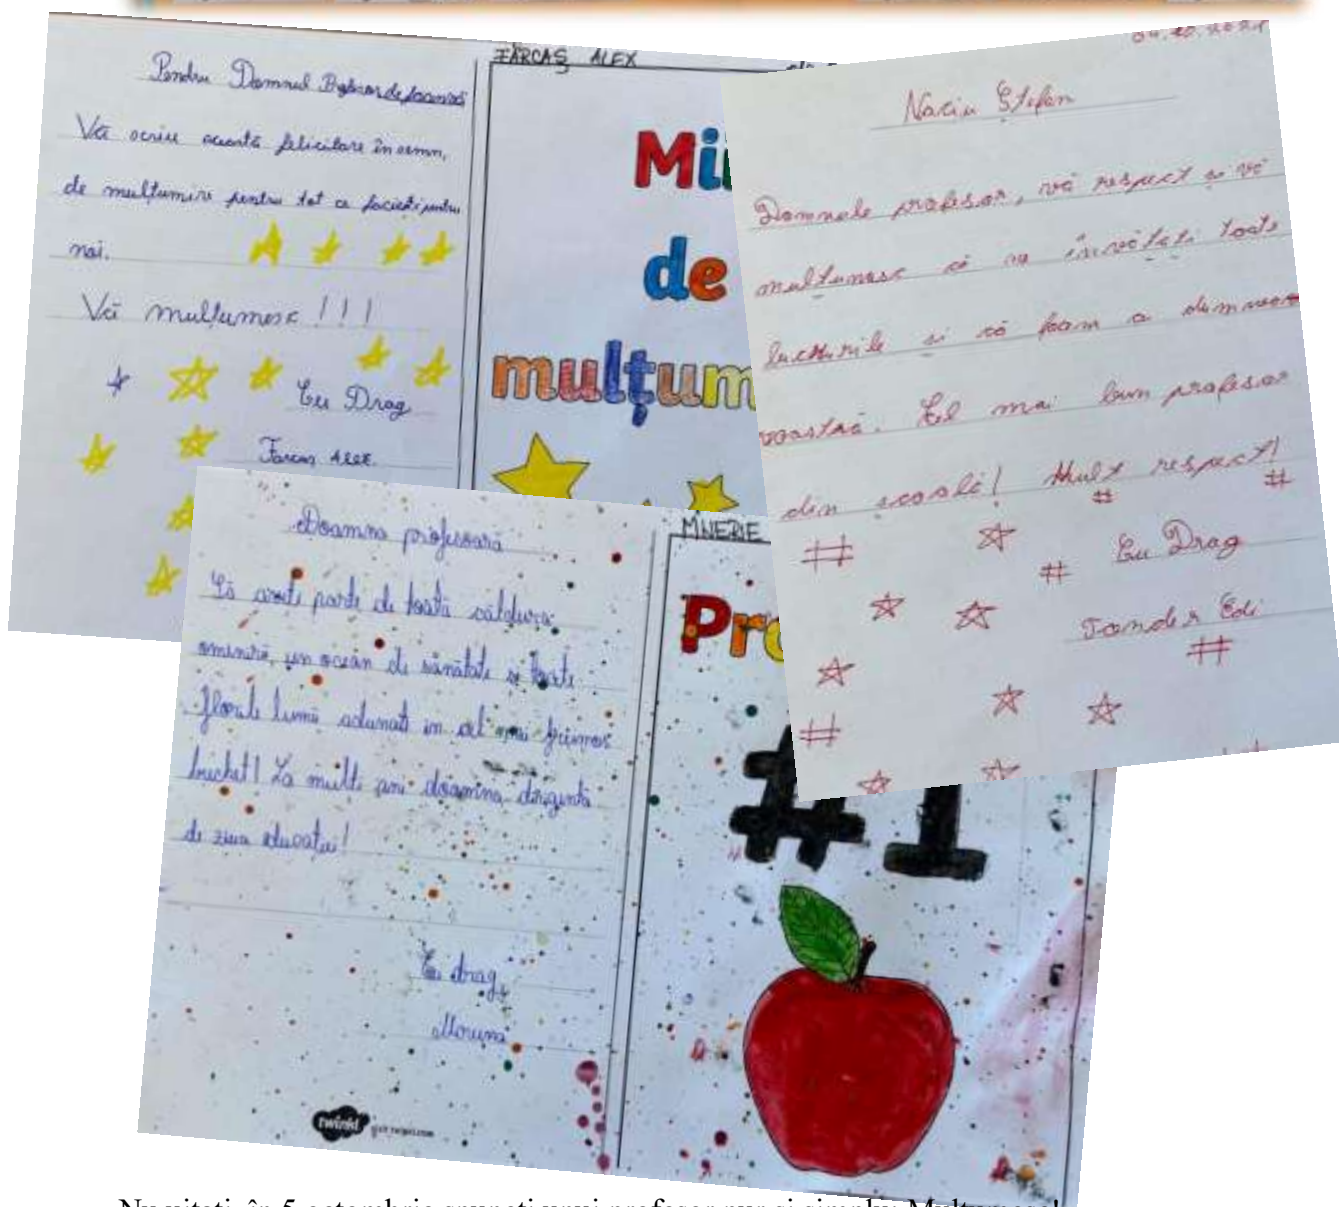 Pentru Domnul Profesor de
Vă scriu această felicitare în semn,
de mulțumire pentru tot ce faceți pentru
noi.
Vă mulțumesc!!!
Cu Drag
Farcaș Alex.
FĂRCAȘ ALEX
Mii
de
mulțum
04.10.202
Ștefan
Domnule profesor, vă respect și vă
mulțumesc că ne învățați toate
lucrurile și că facem a dumnea
voastră. Cel mai bun profesor
din școală! Mult respect!
# #
Cu Drag
#
Tander Edi
#
#
Doamna profesoară
Să aveți parte de toată căldura
omenirii, un ocean de sănătate și toate
florile lumii adunate in cel mai frumos
buchet! La multi ani doamna dirigintă
de ziua educației!
Cu drag,
Moruna
twinkl
MINERIE
Pro
#1
Nu uitați, în 5 octombrie spuneți unui profesor pur și simplu: Mulțumesc!